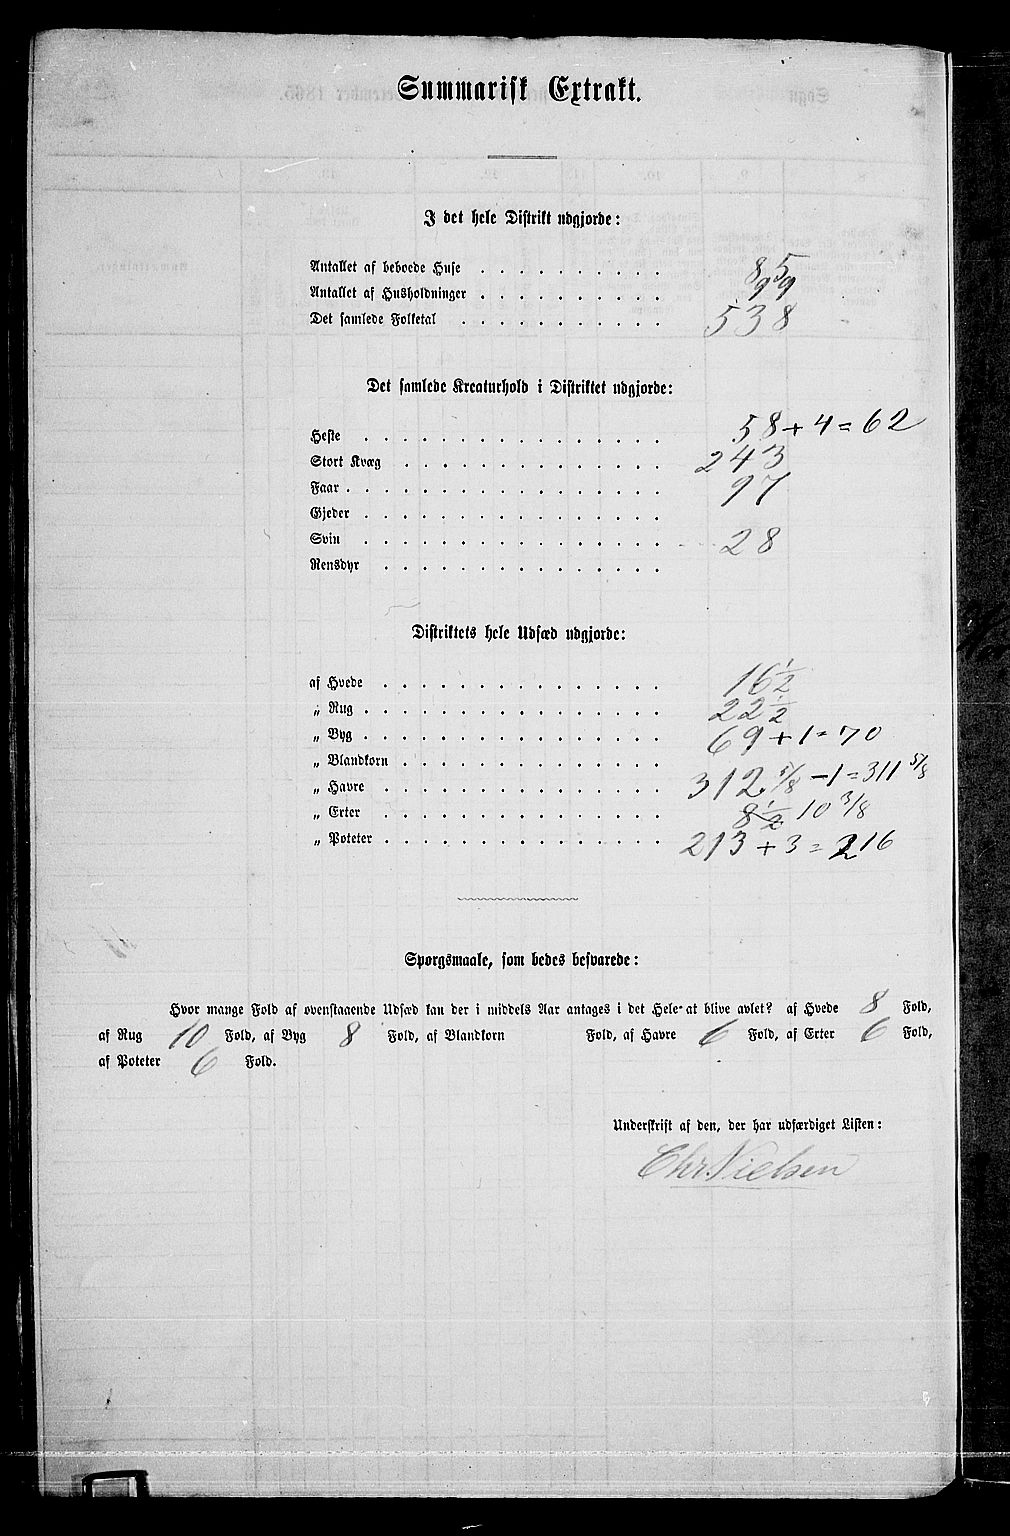 Summarisk Extrakt.
I det hele Distrikt udgjorde:
Antallet af beboede Huse . . . . . . . . . . 85
Antallet af Husholdninger . . . . . . . . . . 99
Det samlede Folketal . . . . . . . . . . . 538
Det samlede Kreaturhold i Distriktet udgjorde:
Heste . . . . . . . . . . . . . . . . 58 + 4 = 62
Stort Kvæg . . . . . . . . . . . . . . 243
Faar . . . . . . . . . . . . . . . . . 97
Gjeder . . . . . . . . . . . . . . . .
Svin . . . . . . . . . . . . . . . . 28
Rensdyr . . . . . . . . . . . . . . .
Distriktets hele Udsæd udgjorde:
af Hvede . . . . . . . . . . . . . . . 16 1/2
„ Rug . . . . . . . . . . . . . . . . 22 1/2
„ Byg . . . . . . . . . . . . . . . . 69 + 1 = 70
„ Blandkorn . . . . . . . . . . . . . .
„ Havre . . . . . . . . . . . . . . . 312 5/8 - 1 = 311 5/8
„ Erter . . . . . . . . . . . . . . . 8 1/2 10 3/8
„ Poteter . . . . . . . . . . . . . . . 213 + 3 = 216
Sporgsmaale, som bedes besvarede:
Hvor mange Fold af ovenstaaende Udsæd kan der i middels Aar antages i det Hele at blive avlet? af Hvede 8 Fold,
af Rug 10 Fold, af Byg 8 Fold, af Blandkorn Fold, af Havre 6 Fold, af Erter 6 Fold,
af Poteter 6 Fold.
Underskrift af den, der har udfærdiget Listen:
Chr. Nielsen